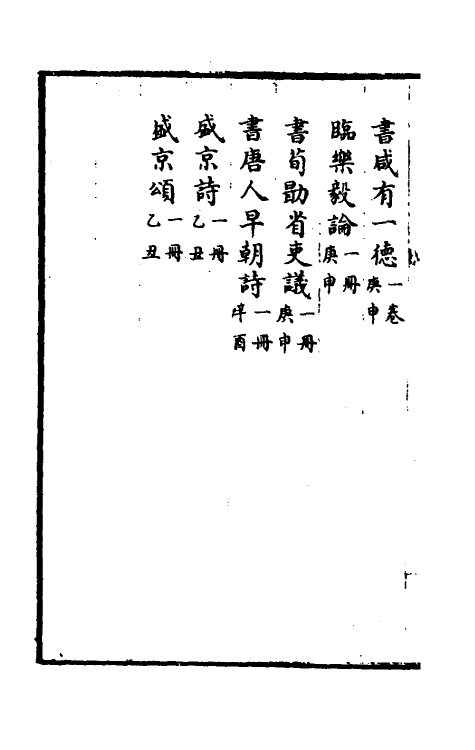 書咸有一德一卷庚申
臨樂毅論一冊庚申
書荀勖省吏議一冊庚申
書唐人早朝詩一冊辛酉
盛京詩一冊乙丑
盛京頌一冊乙丑